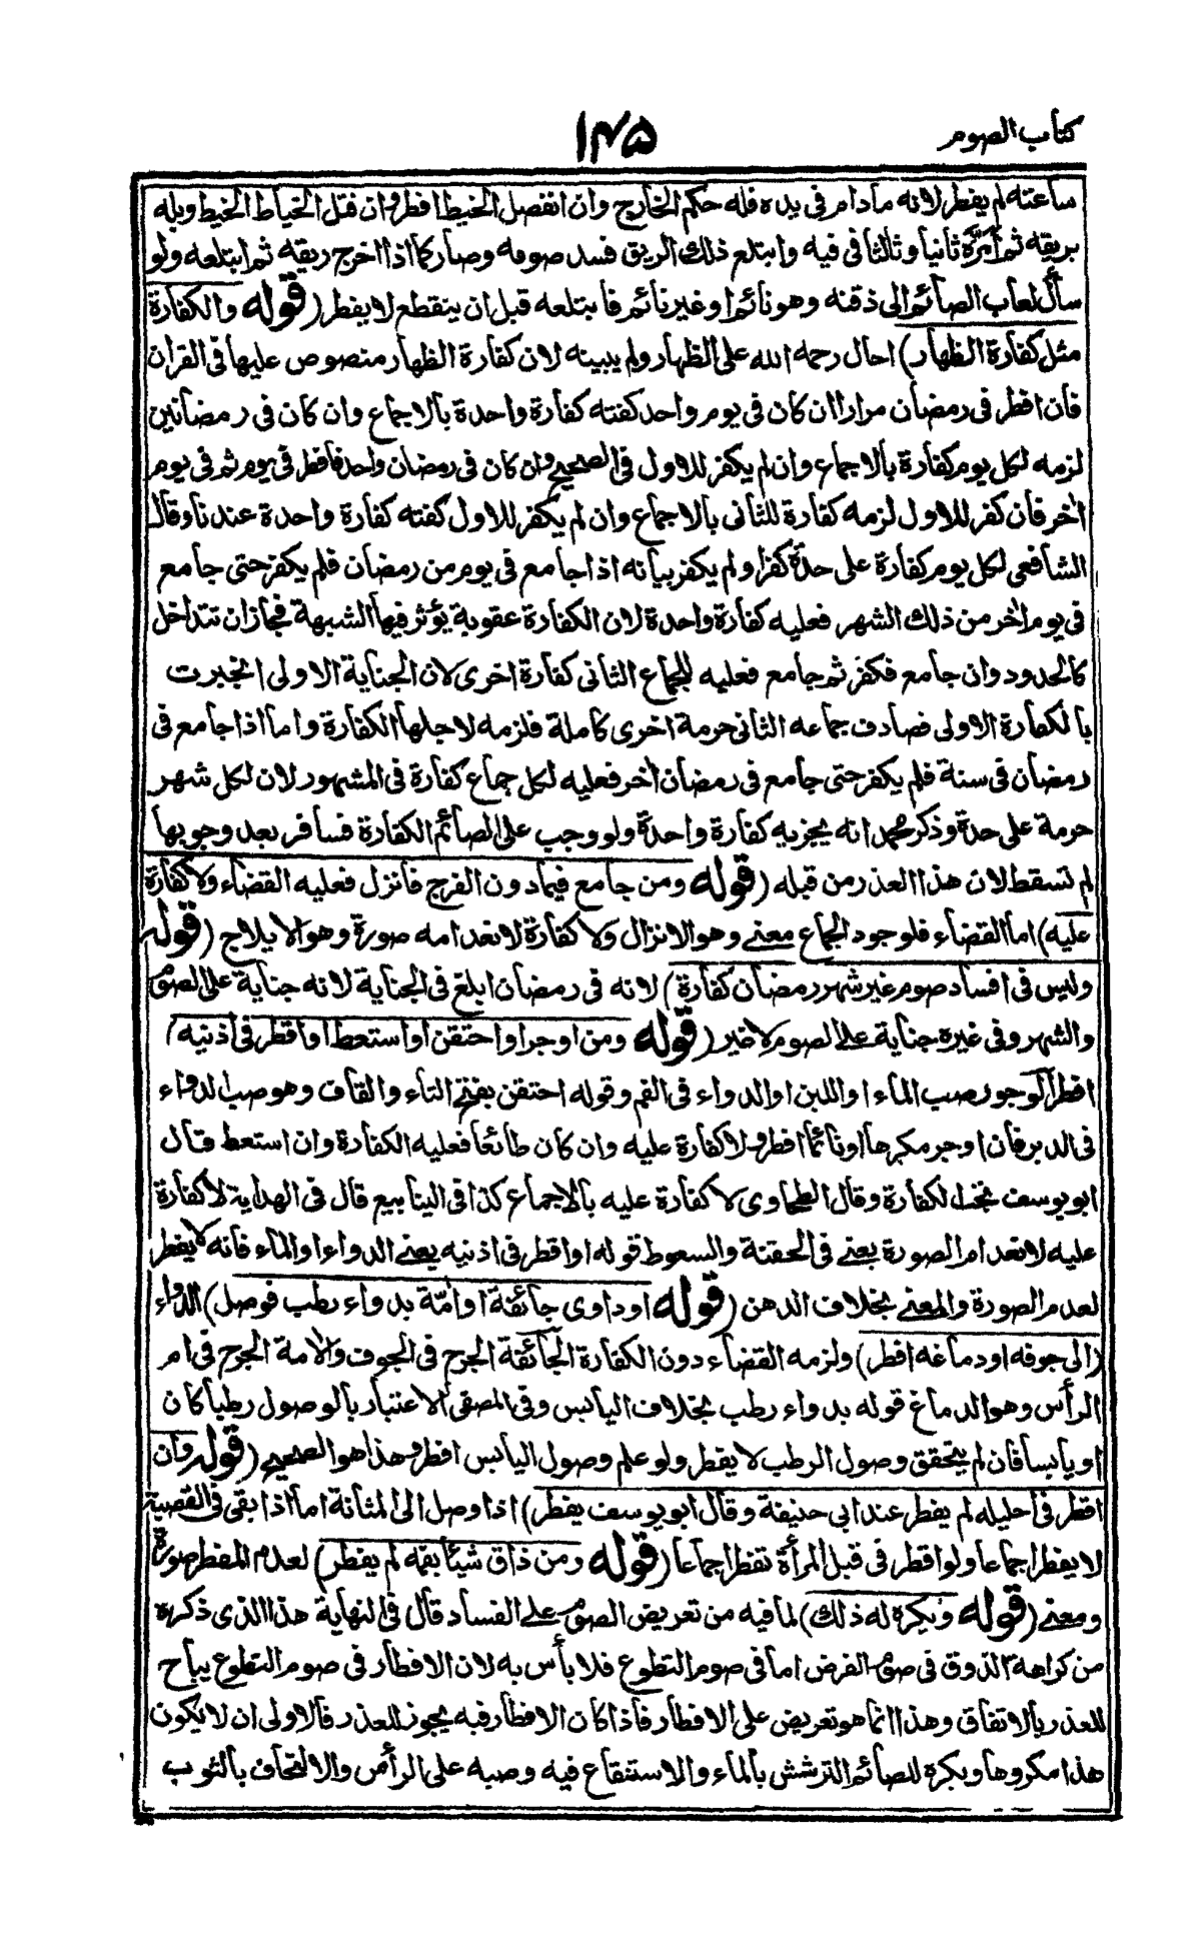 كتاب الصوم
١٢٥
ساعته لم يفطر لانه مادام فى يده فله حكم الخارج وان انفصل الخيط افطر وان فتل الخياط الخيط وبله
بريقه ثم امرّه ثانيا وثالثا فى فيه وابتلع ذلك الريق فسد صومه وصار كما اذا اخرج ريقه ثم ابتلعه ولو
سأل لعاب الصائم الى ذقنه وهو نائم او غير نائم فابتلعه قبل ان ينقطع لا يفطر (قوله والكفارة
مثل كفارة الظهار) احال رحمه الله على الظهار ولم يبينه لان كفارة الظهار منصوص عليها فى القران
فان افطر فى رمضان مرارا ان كان فى يوم واحد كفته كفارة واحدة بالاجماع وان كان فى رمضانين
لزمه لكل يوم كفارة بالاجماع وان لم يكفر للاول فى الصحيح وان كان فى رمضان واحد فافطر فى يوم ثم فى يوم
اخر فان كفر للاول لزمه كفارة للثانى بالاجماع وان لم يكفر للاول كفته كفارة واحدة عندنا وقال
الشافعى لكل يوم كفارة على حدة كفر او لم يكفر بيانه اذا جامع فى يوم من رمضان فلم يكفر حتى جامع
فى يوم اخر من ذلك الشهر فعليه كفارة واحدة لان الكفارة عقوبة يؤثر فيها الشبهة فجاز ان تتداخل
كالحدود وان جامع فكفر ثم جامع فعليه للجماع الثانى كفارة اخرى لان الجناية الاولى انجبرت
بالكفارة الاولى فصادف جماعه الثانى حرمة اخرى كاملة فلزمه لاجلها الكفارة واما اذا جامع فى
رمضان فى سنة فلم يكفر حتى جامع فى رمضان اخر فعليه لكل جماع كفارة فى المشهور لان لكل شهر
حرمة على حدة وذكر محمد انه يجزيه كفارة واحدة ولو وجب على الصائم الكفارة فسافر بعد وجوبها
لم تسقط لان هذا العذر من قبله (قوله ومن جامع فيما دون الفرج فانزل فعليه القضاء ولا كفارة
عليه) اما القضاء فلوجود الجماع معنى وهو الانزال ولا كفارة لانعدامه صورة وهو الايلاج (قوله
وليس فى افساد صوم غير شهر رمضان كفارة) لانه فى رمضان ابلغ فى الجناية لانه جناية على الصوم
والشهر وفى غيره جناية على الصوم لا غير (قوله ومن اوجر او احتقن او استعط او اقطر فى اذنيه)
افطر الوجور صب الماء او اللبن او الدواء فى الفم وقوله احتقن بفتح التاء والقاف وهو صب الدواء
فى الدبر فان اوجر مكرها او نائما افطر ولا كفارة عليه وان كان طائعا فعليه الكفارة وان استعط قال
ابو يوسف تجب الكفارة وقال الطحاوى لا كفارة عليه بالاجماع كذا فى الينابيع قال فى الهداية لا كفارة
عليه لانعدام الصورة يعنى فى الحقنة والسعوط قوله او اقطر فى اذنيه يعنى الدواء او الماء فانه لا يفطر
لعدم الصورة والمعنى بخلاف الدهن (قوله او داوى جائفة او امّة بدواء رطب فوصل) الدواء
(الى جوفه او دماغه افطر) ولزمه القضاء دون الكفارة الجائفة الجرح فى الجوف والامة الجرح فى ام
الرأس وهو الدماغ قوله بدواء رطب بخلاف اليابس وفى المصفى الاعتبار بالوصول رطبا كان
او يابسا فان لم يتحقق وصول الرطب لا يفطر ولو علم وصول اليابس افطر وهذا هو الصحيح (قوله وان
اقطر فى احليله لم يفطر عند ابى حنيفة وقال ابو يوسف يفطر) اذا وصل الى المثانة اما اذا بقى فى القصبة
لا يفطر اجماعا ولو اقطر فى قبل المرأة تفطر اجماعا (قوله ومن ذاق شيئا بفمه لم يفطر) لعدم المفطر صورة
ومعنى (قوله ويكره له ذلك) لما فيه من تعريض الصوم على الفساد قال فى النهاية هذا الذى ذكره
من كراهة الذوق فى صوم الفرض اما فى صوم التطوع فلا بأس به لان الافطار فى صوم التطوع يباح
للعذر بالاتفاق وهذا انما هو تعريض على الافطار فاذا كان الافطار فيه يجوز للعذر فالاولى ان لا يكون
هذا مكروها ويكره للصائم الترشش بالماء والاستنقاع فيه وصبه على الرأس والالتحاف بالثوب